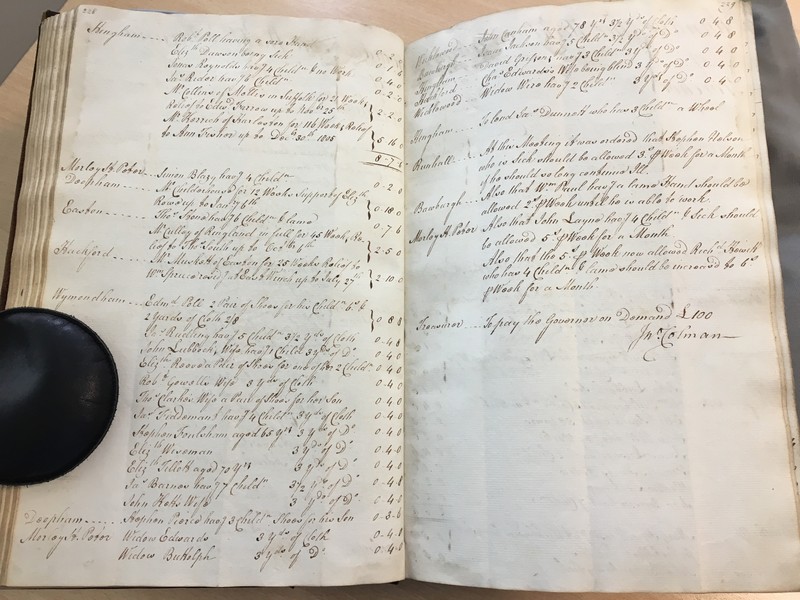 228
Hingham Robt Poll having a sore Hand
Elizth Dawson being Sick
Jonas Reynolds has 4 Childn & no Work 0 - 4 - 0
Jas Rider has 6 Childn 0 - 2 - 0
Mr Collins of Mettis in Suffolk for 21 Weeks
Relief to Edwd Farrow up to Novr 25th 2 - 2 - 0
Mr Herrich of Harleston for 116 Weeks Relief
to Ann Fisher up to Decr 30th 1805 5 - 16 - 0
Morley St Peter Simon Blazy has 4 Childn 0 - 2 - 0
Deopham Mr Calderhouse for 12 Weeks Support of Elizth
Rowe up to Jany 6th 0 - 18 - 0
Easton Thos Stone has 6 Childn & lame 0 - 7 - 6
Mr Culley of Ringland in full for 45 Weeks Re-
lief to Thos South up to Octr 4th 2 - 5 - 0
Hackford Mr Muskett of Easton for 25 Weeks Relief to
Wm Spruce resid at East Winch up to July 27th 2 - 10 - 0
Wymondham Edmd Poll 2 Pair of Shoes for his Childn 6s &
2 yards of Cloth 2/8 0 - 8 - 8
Jn Rudling has 5 Childn 3½ yds of Cloth 0 - 4 - 8
John Lubbock, Wife has 1 Child 3 yds of Do 0 - 4 - 0
Elizth Roove a Pair of Shoes for one of her 2 Childn 0 - 4 - 0
Robt Gowells Wife 3 yds of Cloth 0 - 4 - 0
Thos Clarkes Wife a Pair of Shoes for her Son 0 - 4 - 0
Jas Tiddemant has 4 Childn 3 yds of Cloth 0 - 4 - 0
Stephen Foulsham aged 65 yrs 3 yds of Do 0 - 4 - 0
Elizth Wiseman 3 yds of Do 0 - 4 - 0
Elizth Tillett aged 70 yrs 3 yds of Do 0 - 4 - 0
Jas Barnes has 7 Childn 3½ yds of Do 0 - 4 - 8
John Ketts Wife 3 yds of Do 0 - 4 - 0
Deopham Stephen Peired has 3 Childn Shoes for his Son 0 - 3 - 6
Morley St Peter Widow Edwards 3 yds of Cloth 0 - 4 - 0
Widow Bukolph 3 yds of Do 0 - 4 - 0
229
John Canham aged 78 yrs 3½ yds of Cloth 0 4 8
Jonas Jackson has 5 Childn 3½ yds of Do 0 4 8
Bawburgh David Grifson has 3 Childn 3 yds of Do 0 4 0
Hingham Chas Edwards's Wife being blind 3 yds of Do 0 4 0
Widow Wire has 2 Childn 3 yds of Do 0 4 0
Hingham To lend Jas Dunnett who has 3 Childn a Wheel
Runhall At this Meeting it was ordered that Stephen Nelson
who is Sick should be allowed 3s P Week for a Month
if he should so long continue Ill.
Bawburgh Also that Wm Paul has a lame Hand should be
allowed 2s P Week until he is able to work.
Morley St Peter Also that John Layne has 4 Childn & Sick should
be allowed 5s P Week for a Month
Also that the 5s P Week now allowed Richd Howitt
who has 4 Childn & lame should be increased to 6s
P Week for a Month
Treasurer To pay the Governor on Demand £100
Jn Colman